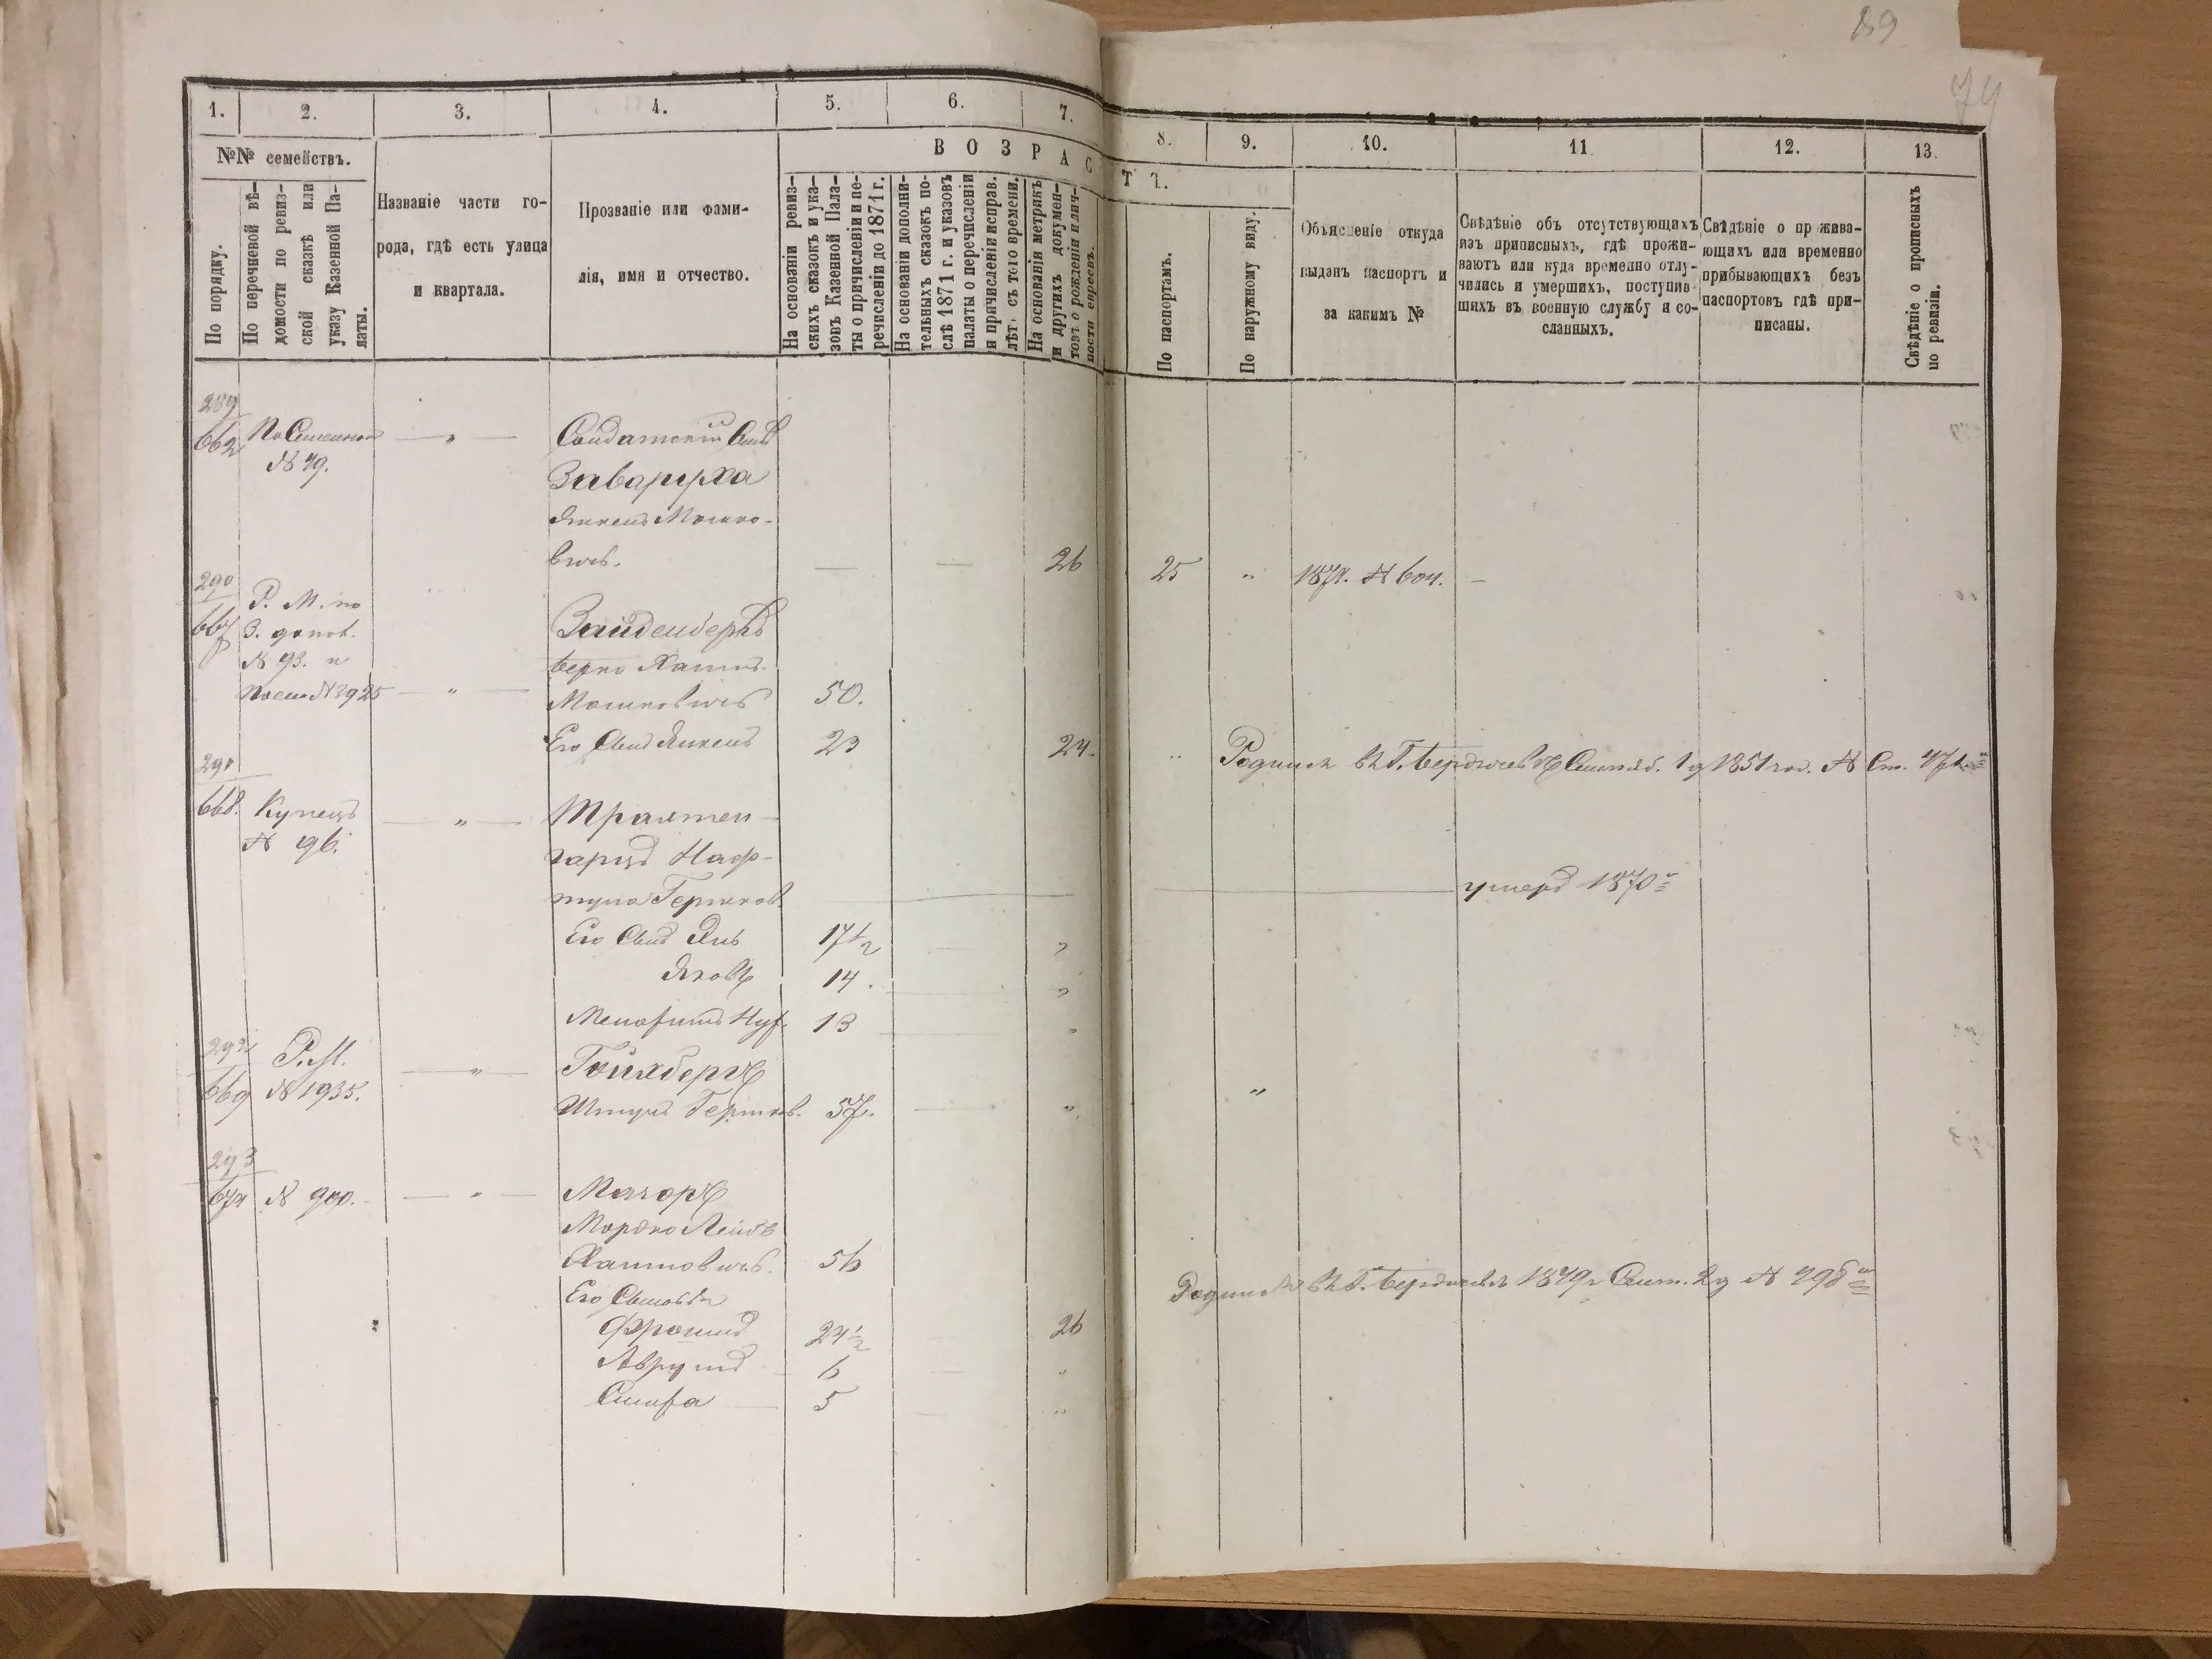 89
74
1.
2.
3.
4.
5.
6.
7.
8.
9.
10.
11.
12.
13.
№№ семействъ.
ВОЗРАСТЪ.
По порядку.
По перечневой вѣ-
домости по ревиз-
ской сказкѣ или
указу Казенной Па-
латы.
Названіе части го-
рода, гдѣ есть улица
и квартала.
Прозваніе или фами-
лія, имя и отчество.
На основаніи ревиз-
скихъ сказокъ и ука-
зовъ Казенной Пала-
ты о причисленіи и пе-
речисленіи до 1871 г.
На основаніи дополни-
тельныхъ сказокъ по-
слѣ 1871 г. и указовъ
палаты о перечисленіи
и причисленіи исправ.
лѣтъ съ того времени.
На основаніи метрикъ
и другихъ докумен-
товъ о рожденіи и лич-
ности евреевъ.
По паспортамъ.
По наружному виду.
Объясненіе откуда
выданъ паспортъ и
за какимъ №
Свѣдѣніе объ отсутствующихъ
изъ приписныхъ, гдѣ прожи-
ваютъ или куда временно отлу-
чились и умершихъ, поступив-
шихъ въ военную службу и со-
сланныхъ.
Свѣдѣніе о прожива-
ющихъ или временно
прибывающихъ безъ
паспортовъ гдѣ при-
писаны.
Свѣдѣніе о прописныхъ
по ревизіи.
289
662
№ 79.
— „ —
Заваруха
Янкель Мошко-
вичъ. — — 26 25 „ №
290
667 Р. М. по
3. допол.
№ 93. и
№ 3925 — „ —
Зайденбергъ
Берко Хаимъ
Мошковичъ 50.
Его Сынъ Янкель 23 24. „ Родился въ Г. Бердичевѣ 1851 год. № Ст.
291
668. Купецъ
№ 96. — „ — Трахтен-
гарцъ Наф-
тула Гершков. умеръ 1870 г.
Его Сынъ 17 1/2 „
Яковъ 14. „
13 „
292
669 Р. М.
№ 1935. — „ — Гойхбергъ
Гершков. 57. „ „
293
№ 900. — „ — Мазоръ
Мордко Лейба
Хаимовичъ. 56
Его Сыновья Родился въ Г. Бердичевѣ 1849 г.
Фроимъ 24 1/2 26
Аврумъ 6 „
5 „